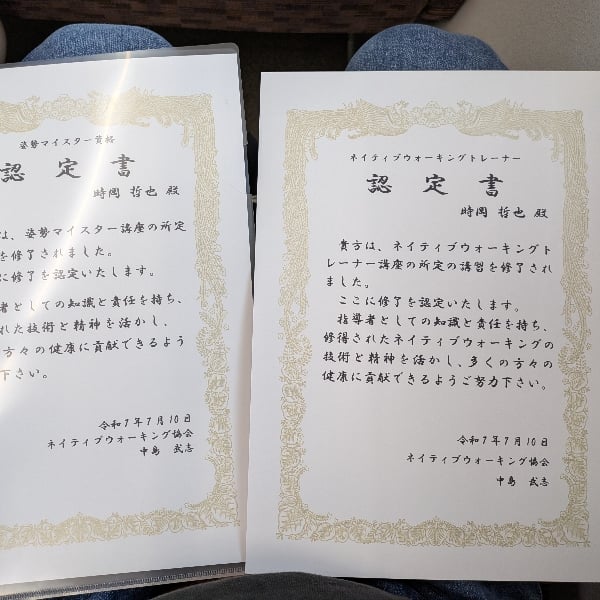 姿勢マイスター資格
認定書
時岡 哲也 殿
は、姿勢マイスター講座の所定
を修了されました。
に修了を認定いたします。
者としての知識と責任を持ち、
れた技術と精神を活かし、
方々の健康に貢献できるよう
下さい。
令和7年7月10日
ネイティブウォーキング協会
中島 武志
ネイティブウォーキングトレーナー
認定書
時岡 哲也 殿
貴方は、ネイティブウォーキングト
レーナー講座の所定の講習を修了され
ました。
ここに修了を認定いたします。
指導者としての知識と責任を持ち、
修得されたネイティブウォーキングの
技術と精神を活かし、多くの方々の
健康に貢献できるようご努力下さい。
令和7年7月10日
ネイティブウォーキング協会
中島 武志